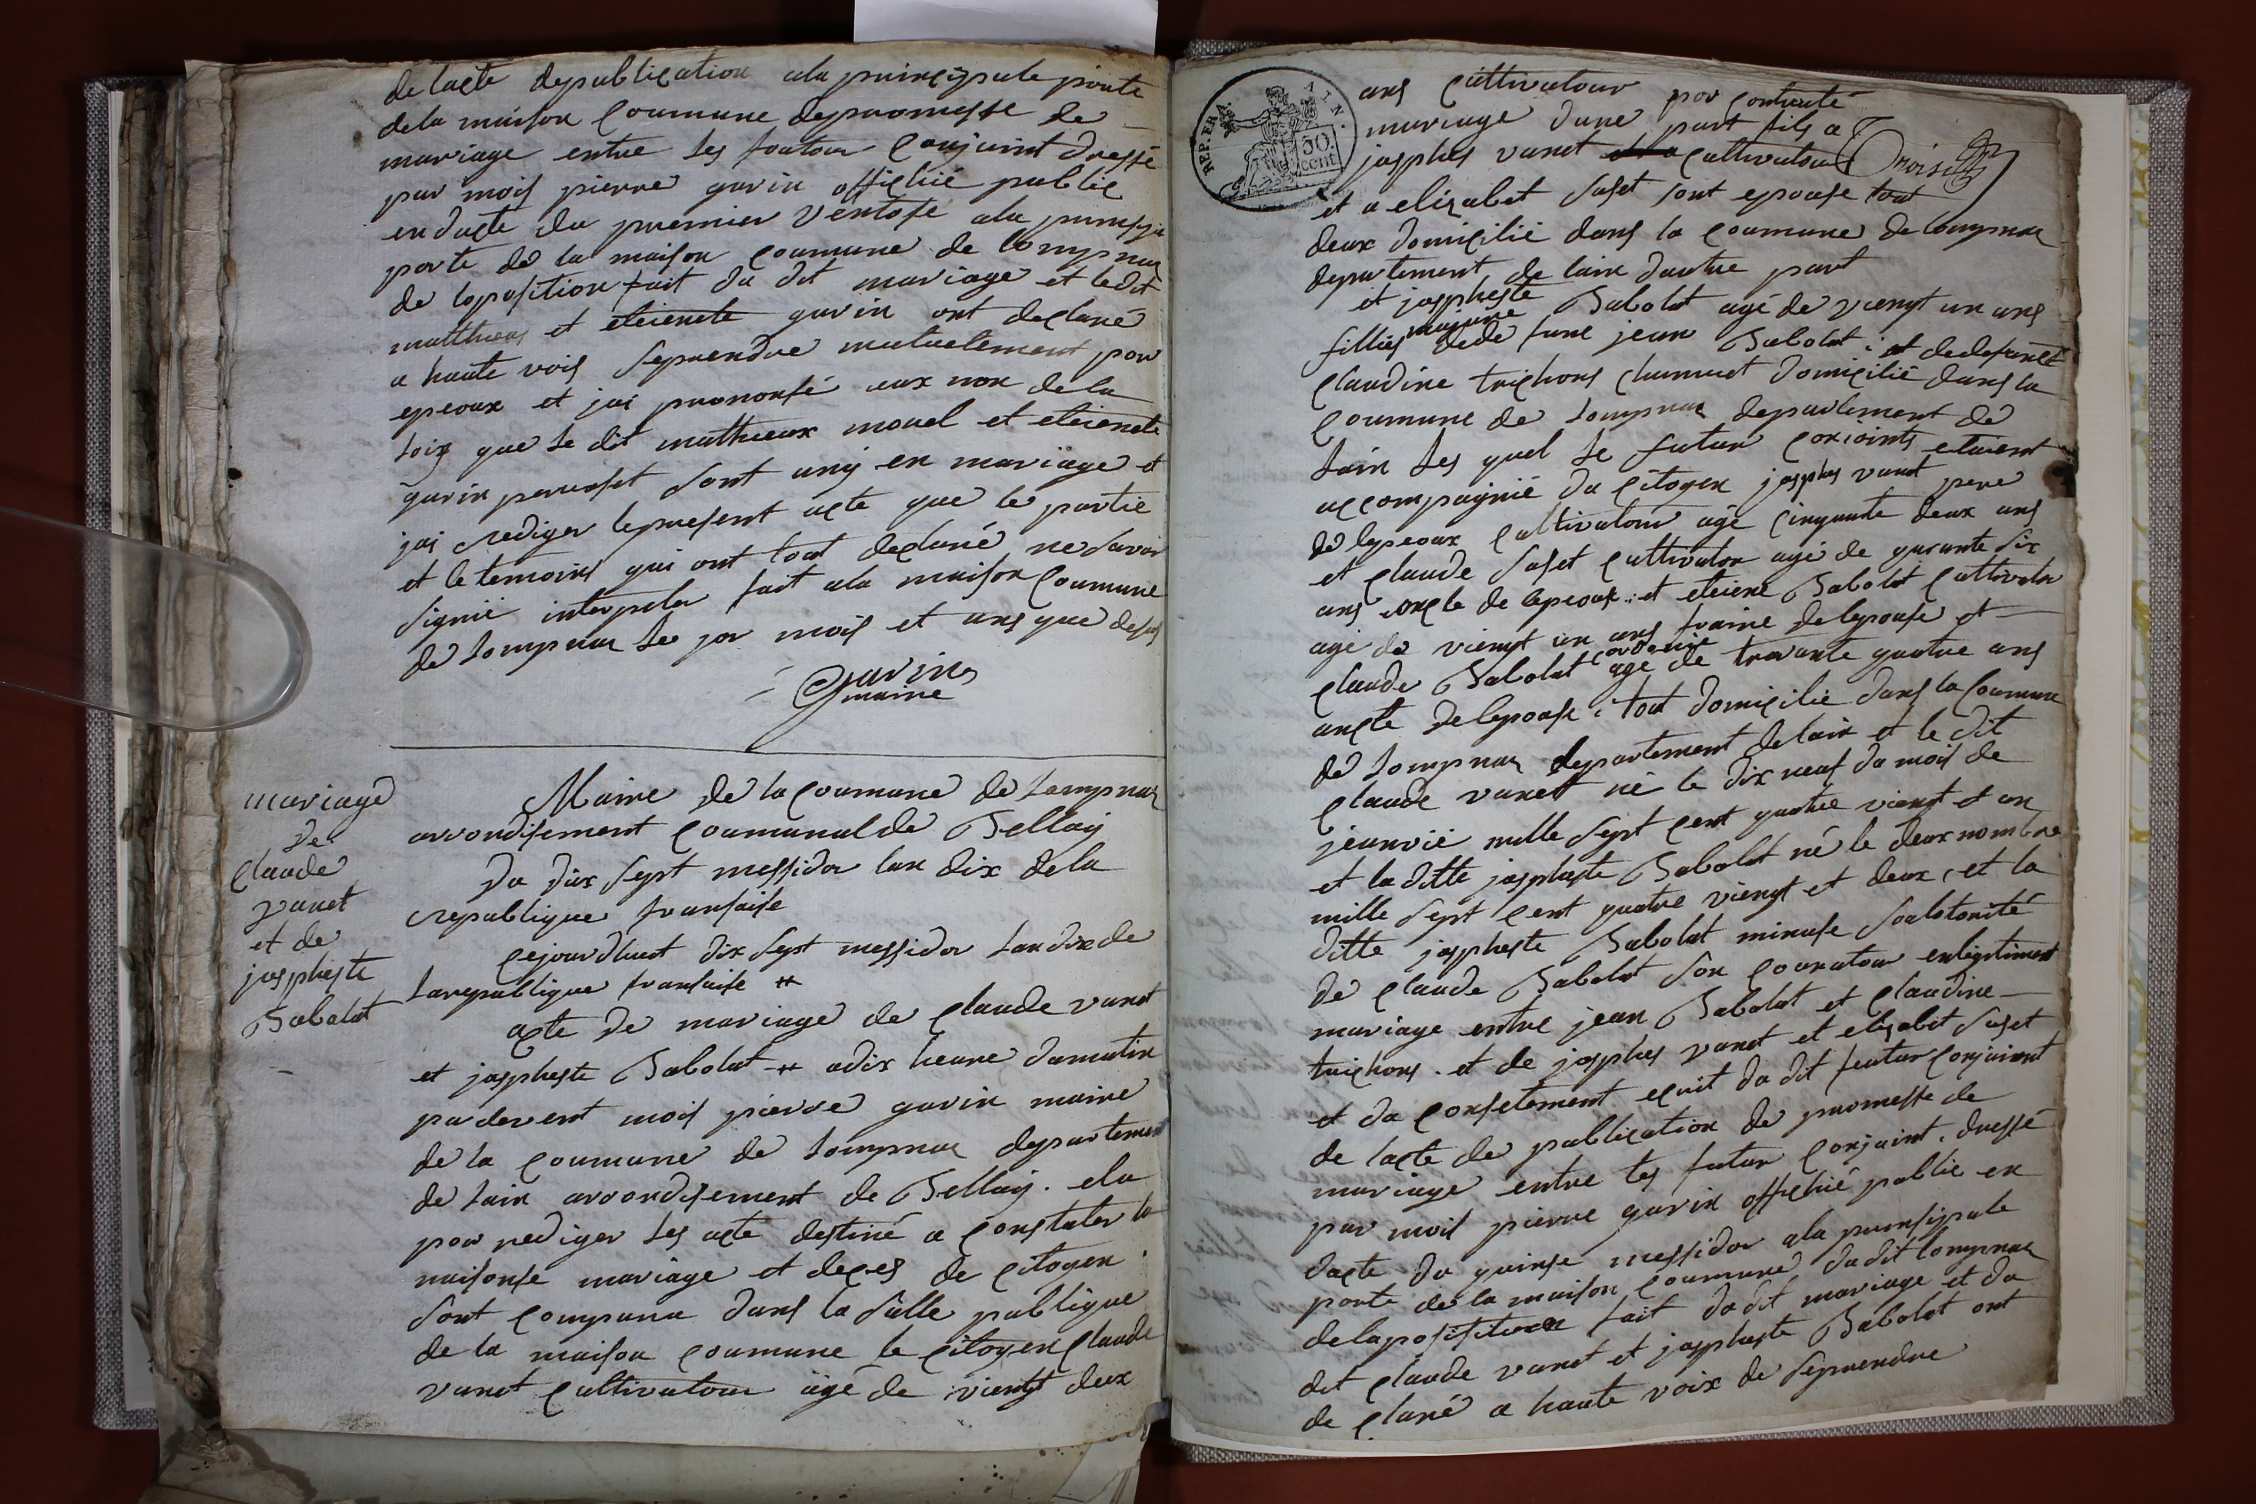 de lacte depublication ala principale porte
dela maison Coumune depromesse de
mariage entre les fouteur Conjoint dressé
par mois pierre gavin offichié public
en dacte du premier ventose ala prinsipa
porte de la maison coumune de lompnas
de loposition fait du dit mariage et ledit
matthieux et eteienete gavin ont declaré
a haute vois seprendre mutuelement pour
epeoux et jai prononsé aux non de la
loix que le dit mathieux morel et eteienete
gavin perrosset sont unÿ en mariage et
jai rediger lepresent acte que le partie
et le temoins qui ont tout declaré ne savoir
signié interpeler fait ala maison Coumune
de Lompnas les jor mois et ans que desus
Gavin
maire
mariage
de
Claude
vanet
et de
jospheste
Babolat
Maire de la Coumune de Lompnas
arrondisement Coumunal de Bellaÿ
Du dix sept messidor lan dix dela
republique fransaise
Cejourdhuit dix sept messidor Lan dix de
Larepublique fransaise #
acte de mariage de Claude vanet
et jospheste Babolat # adix heure dumatin
pardevent mois pierre gavin maire
de la Coumune de Lompnas departement
de Lain arrondisement de Bellaÿ. elu
pour rediger les acte destiné a Constater la
naisonse mariage et deces de Citoyen
sont Comparu dans la salle publique
de la maison Coumune le Citoyen Claude
vanet Cultivatour agé de vientgt deux
REP. FRA. AIN.
50.
cent
ans Cultivatour por Contracté
mariage dune part fils a
josphes vanet Cultivatour
et a elizabet suset sont epouse tout
deux domicilié dans la Coumune de lompnas
departement de lain dautre part
et jospheste Babolat agé de viengt un ans
fillies majure dede fune jean Babolat et dedefunct
Claudine trichons Chumut domicilié dans la
Coumune de Lompnas departement de
Lain Les quel le futur Conjoints etaient
accompaignié du Citoyen josphes vanet pere
de lepeoux Cultivatour agé Cinquante deux ans
et Claude suset Cultivator agé de quarante six
ans oncle de lepeoux et eteiene Babolat Cultivator
agé de viengt un ans fraire delepouse et
Claude Babolat agé de trorante quatre ans
oncle delepouse tout domicilié dans la Coumune
de Lompnas departement delain et le dit
Claude vanett né le dix neuf du mois de
jeanvié mille sept Cent quatre viengt et un
et la ditte josphepte Babolat né le deux nombre
mille sept Cent quatre viengt et deux, et la
ditte josphepte Babolat minuse soulotorité
de Claude Babolat son Courator enlegitiment
mariage entre jean Babolat et Claudine
trichons. et de josphes vanet et elizabet suset
et du Consetement ecrit du dit feutur Conjoient
de lacte de publication de promesse de
mariage entre les futur Conjoint. dressé
par mois pierre gavin offichié public en
dacte du quinse messidor ala prinsipale
porte de la maison Coumune dudit lompnas
delapposition fait du dit mariage et du
dit Claude vanet et josphepte Babolat ont
de Claré a haute voix de seprendre